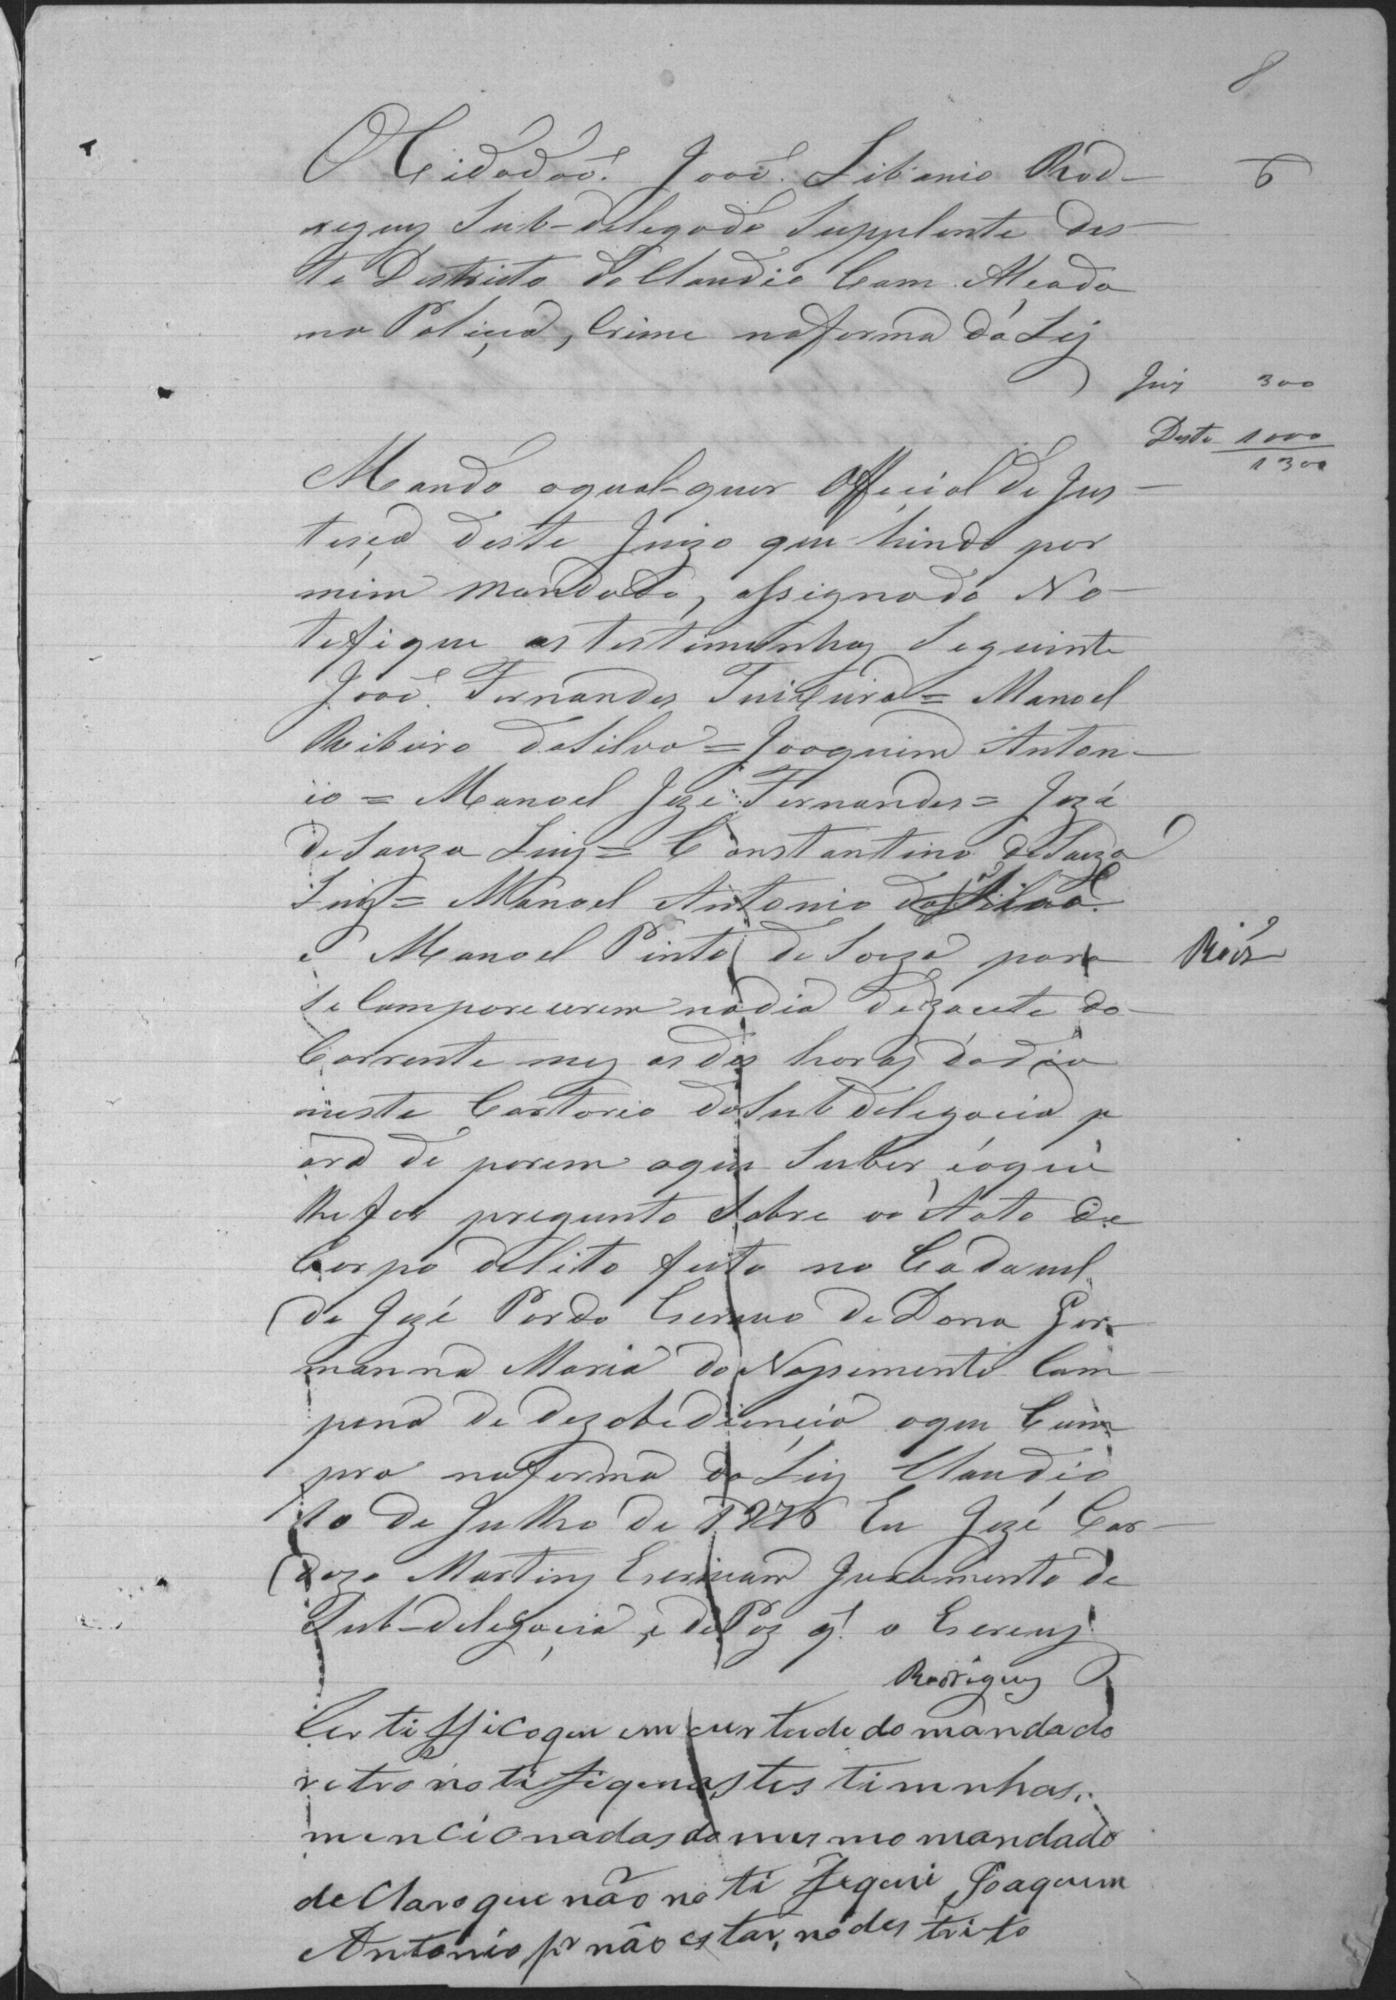 8
O Cidadaõ João Libanio Rod-
6
rigues Sub-delegado Supplente des-
te Districto do Claudio Com Alçada
no Poliçia, Crime naforma da Lej
Juis 300
Deste 1000
1300
Mando aqual-quer Offecial de Jus-
tesça deste Juizo que hindo por
mim mandado, assignado No-
tefique as testemunhas Seguinte
João Fernandes Teixeira = Manoel
Ribeiro daSilva = Joaquim Anton-
io = Manoel Jozé Fernandes = Jozé
deSouza Luis = Constantino deSouza
Luis = Manoel Antonio da Silva
e Manoel Pinto de Souza para
Reós
se Comparecerem nodia dezacete do
Corrente mez as des horas dodia
neste Cartorio daSubdelegacia p
ara dé porem oque Suber, éoque
lhe for pregunto Sobre oo Auto de
Corpo delito feito no Cadavel
de Jozé Pardo Escravo de Dona Ger-
manna Maria do Nassimento Com
pena de dezobediencia oque Cum
pra naforma da Lej Claudio
10 de Julho de 1876 Eu Jozé Car-
dozo Martins Escrivam Juramento de
Sub-delegaçia, e dePaz q. o Escrevy
Rodrigues
Certifficoque em vertude do mandado
retro notifiquei as testimnhas
mencionadas do mesmo mandado
deClaro que não notifequei Joaquim
Antonio pr não estar, nodestrito